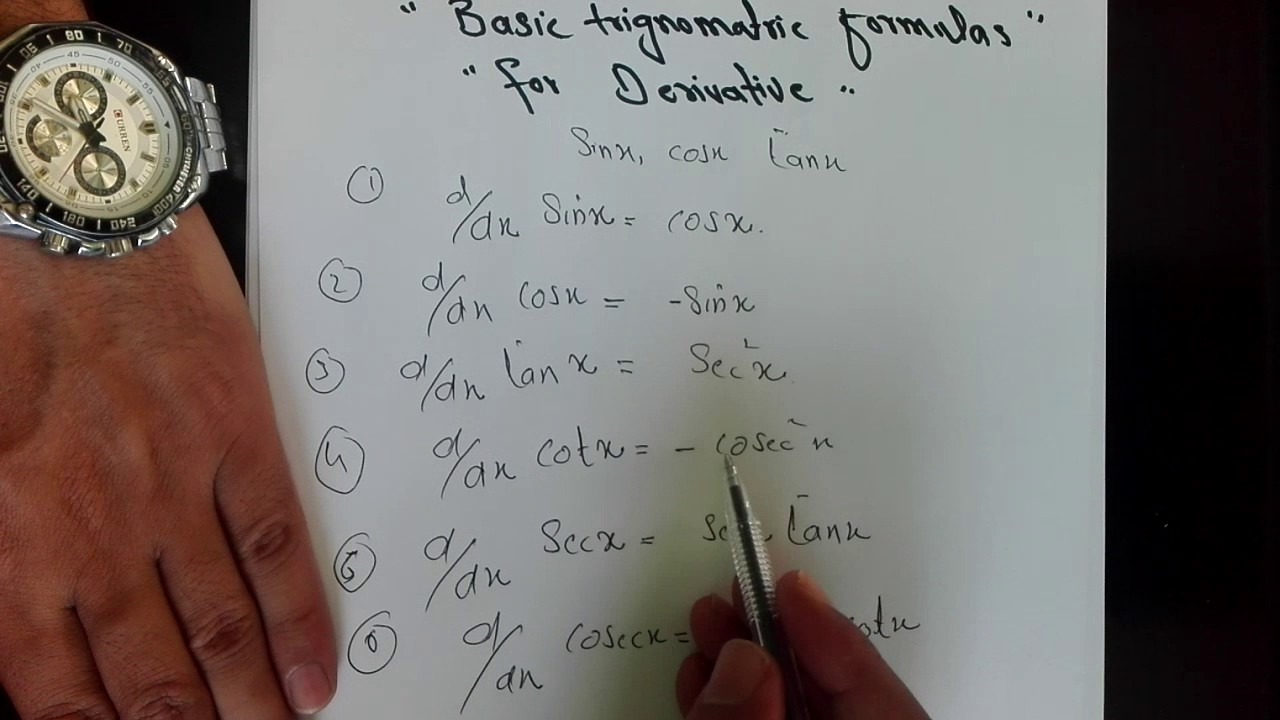 " Basic trignomatric formulas "
" for Derivative "
Sinx, cosx tanx
① d/dx Sinx = cosx.
② d/dx cosx = -Sinx
③ d/dx tan x = Sec²x.
④ d/dx cotx = - cosec²x
⑤ d/dx Secx = tanx
⑥ d/dx cosecx = cotx
CURREN